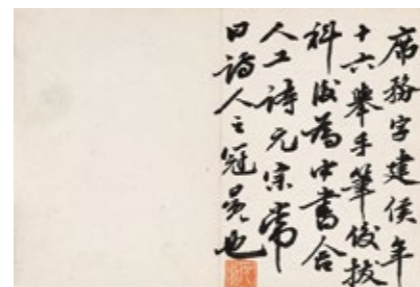 席豫字建侯年
十六舉手筆俊拔
科後為中書舍
人工詩元宗常
曰詩人之冠冕也